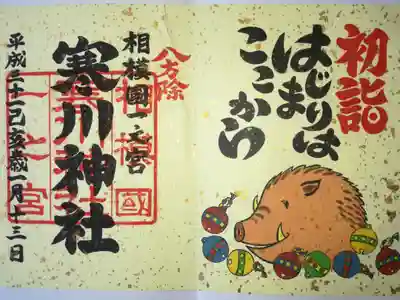 初詣
はじまりは
ここから
八方除
相模國一之宮
寒川神社
平成三十一己亥歳一月十三日
相模國一之宮